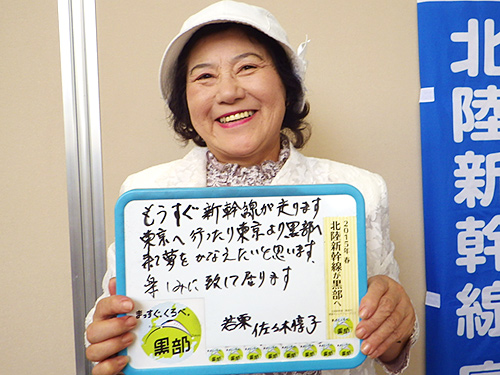 もうすぐ新幹線が走ります
東京へ行ったり東京より黒部へ
来る夢をかなえたいと思います。
楽しみに致して居ります
若栗 佐々木惇子
2015年春
北陸新幹線が黒部へ。
まっすぐ、くろべ。
黒部
北陸新幹線